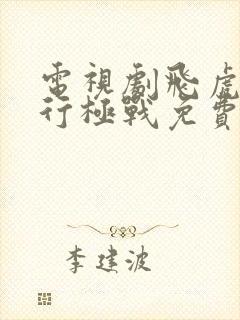 電視劇飛虎
行極戰免費
李建波